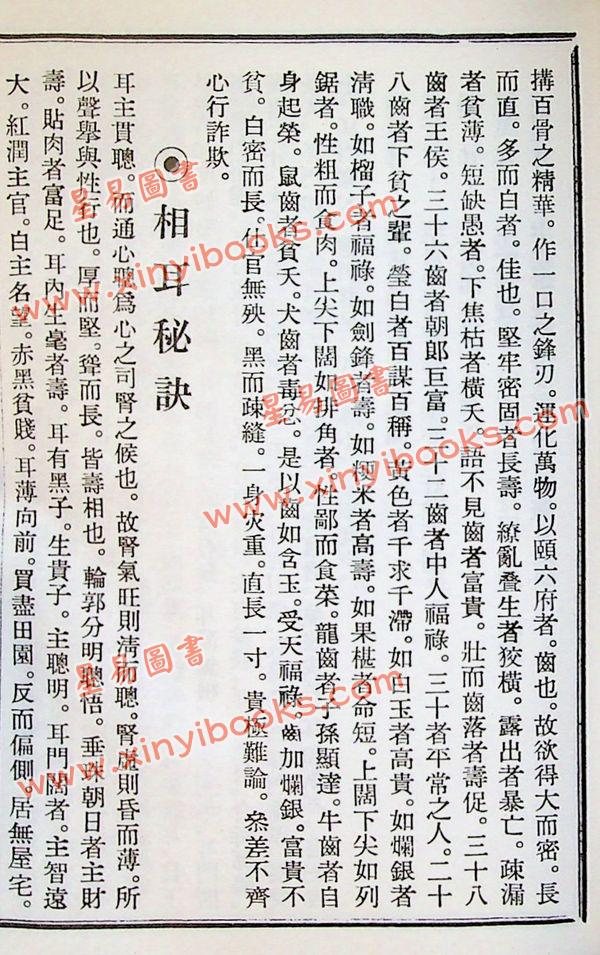 搆百骨之精華。作一口之鋒刃。運化萬物。以頤六府者。齒也。故欲得大而密。長
而直。多而白者。佳也。堅牢密固者長壽。繚亂叠生者狡橫。露出者暴亡。疎漏
者貧薄。短缺愚者。下焦枯者橫夭。語不見齒者富貴。壯而齒落者壽促。三十八
齒者王侯。三十六齒者朝郎巨富。三十二齒者中人福祿。三十者平常之人。二十
八齒者下貧之輩。瑩白者百謀百稱。黃色者千求千滯。如白玉者高貴。如爛銀者
清職。如榴子者福祿。如劍鋒者壽。如粳米者高壽。如果椹者命短。上闊下尖如列
鋸者。性粗而食肉。上尖下闊如排角者。性鄙而食菜。龍齒者子孫顯達。牛齒者自
身起榮。鼠齒者貧夭。犬齒者毒忿。是以齒如含玉。受天福祿。齒加爛銀。富貴不
貧。白密而長。仕官無殃。黑而疎縫。一身灾重。直長一寸。貴極難論。叅差不齊
心行詐欺。
◉相耳秘訣
耳主貫聰。而通心聰爲心之司腎之候也。故腎氣旺則清而聰。腎虛則昏而薄。所
以聲舉與性行也。厚而堅。聳而長。皆壽相也。輪郭分明聰悟。垂珠朝日者主財
壽。貼肉者富足。耳內生毫者壽。耳有黑子。生貴子。主聰明。耳門闊者。主智遠
大。紅潤主官。白主名望。赤黑貧賤。耳薄向前。買盡田園。反而偏側。居無屋宅。
星易圖書
www.xinyibooks.com
星易圖書
www.xinyibooks.com
星易圖書
www.xinyibooks.com